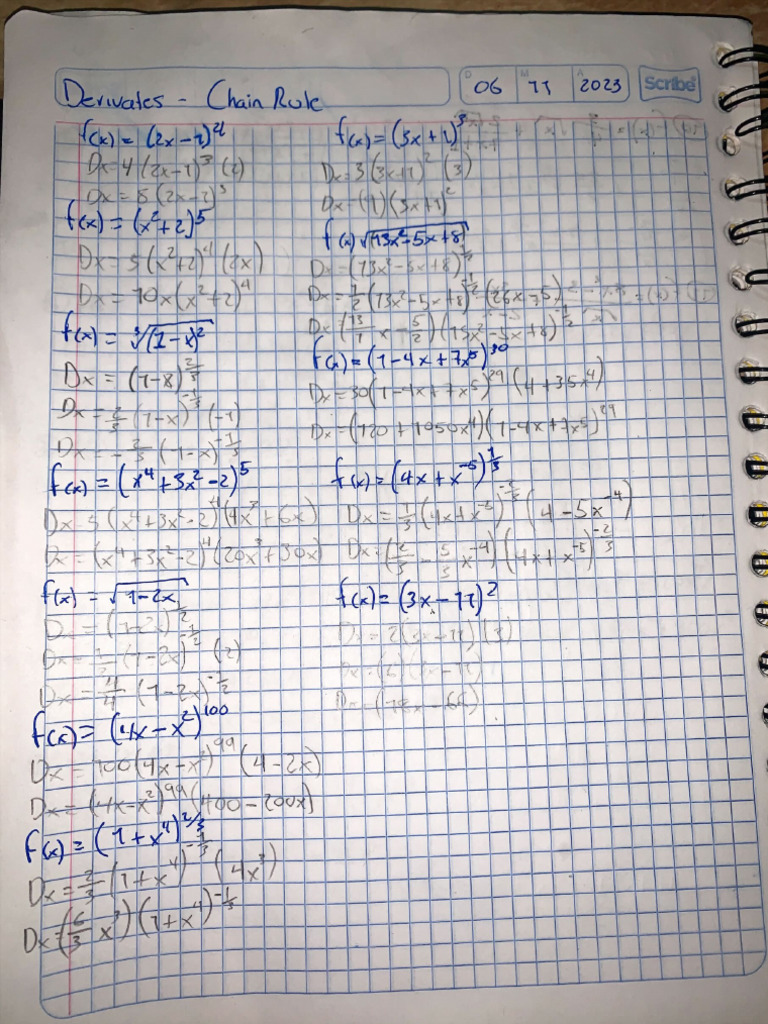 Derivates - Chain Rule
D 06 M 11 A 2023 Scribe
f(x) = (2x-1)^4
Dx = 4(2x-1)^3 (2)
Dx = 8(2x-1)^3
f(x) = (x^2+2)^5
Dx = 5(x^2+2)^4 (2x)
Dx = 10x(x^2+2)^4
f(x) = ∛(1-x)^2
Dx = (1-x)^{2/3}
Dx = 2/3 (1-x)^{-1/3} (-1)
Dx = -2/3 (1-x)^{-1/3}
f(x) = (x^4+3x^2-2)^5
Dx = 5(x^4+3x^2-2)^4 (4x^3+6x)
Dx = (x^4+3x^2-2)^4 (20x^3+30x)
f(x) = √1-2x
Dx = (1-2x)^{1/2}
Dx = 1/2 (1-2x)^{-1/2} (2)
Dx = 4/4 (1-2x)^{-1/2}
f(x) = (4x-x^2)^100
Dx = 100(4x-x^2)^99 (4-2x)
Dx = (4x-x^2)^99 (400-200x)
f(x) = (1+x^4)^{2/3}
Dx = 2/3 (1+x^4)^{-1/3} (4x^3)
Dx = (6/3 x^3)(1+x^4)^{-1/3}
f(x) = (3x+1)^3
Dx = 3(3x+1)^2 (3)
Dx = (3x+1)^2
f(x) √13x^2-5x+8
Dx = (13x^2-5x+8)^{1/2}
Dx = 1/2 (13x^2-5x+8)^{-1/2} (26x-5)
Dx = (13/1 x - 5/2)(13x^2-5x+8)^{-1/2}
f(x) = (1-4x+7x^5)^30
Dx = 30(1-4x+7x^5)^29 (4+35x^4)
Dx = (120+1050x^4)(1-4x+7x^5)^29
f(x) = (4x+x^{-5})^{1/3}
Dx = 1/3 (4x+x^{-5})^{-2/3} (4-5x^{-4})
Dx = (2/3 - 5/3 x^{-4})(4x+x^{-5})^{-2/3}
f(x) = (3x-11)^2
Dx = 2(3x-11)(3)
Dx = (6)(3x-11)
Dx = (18x-66)